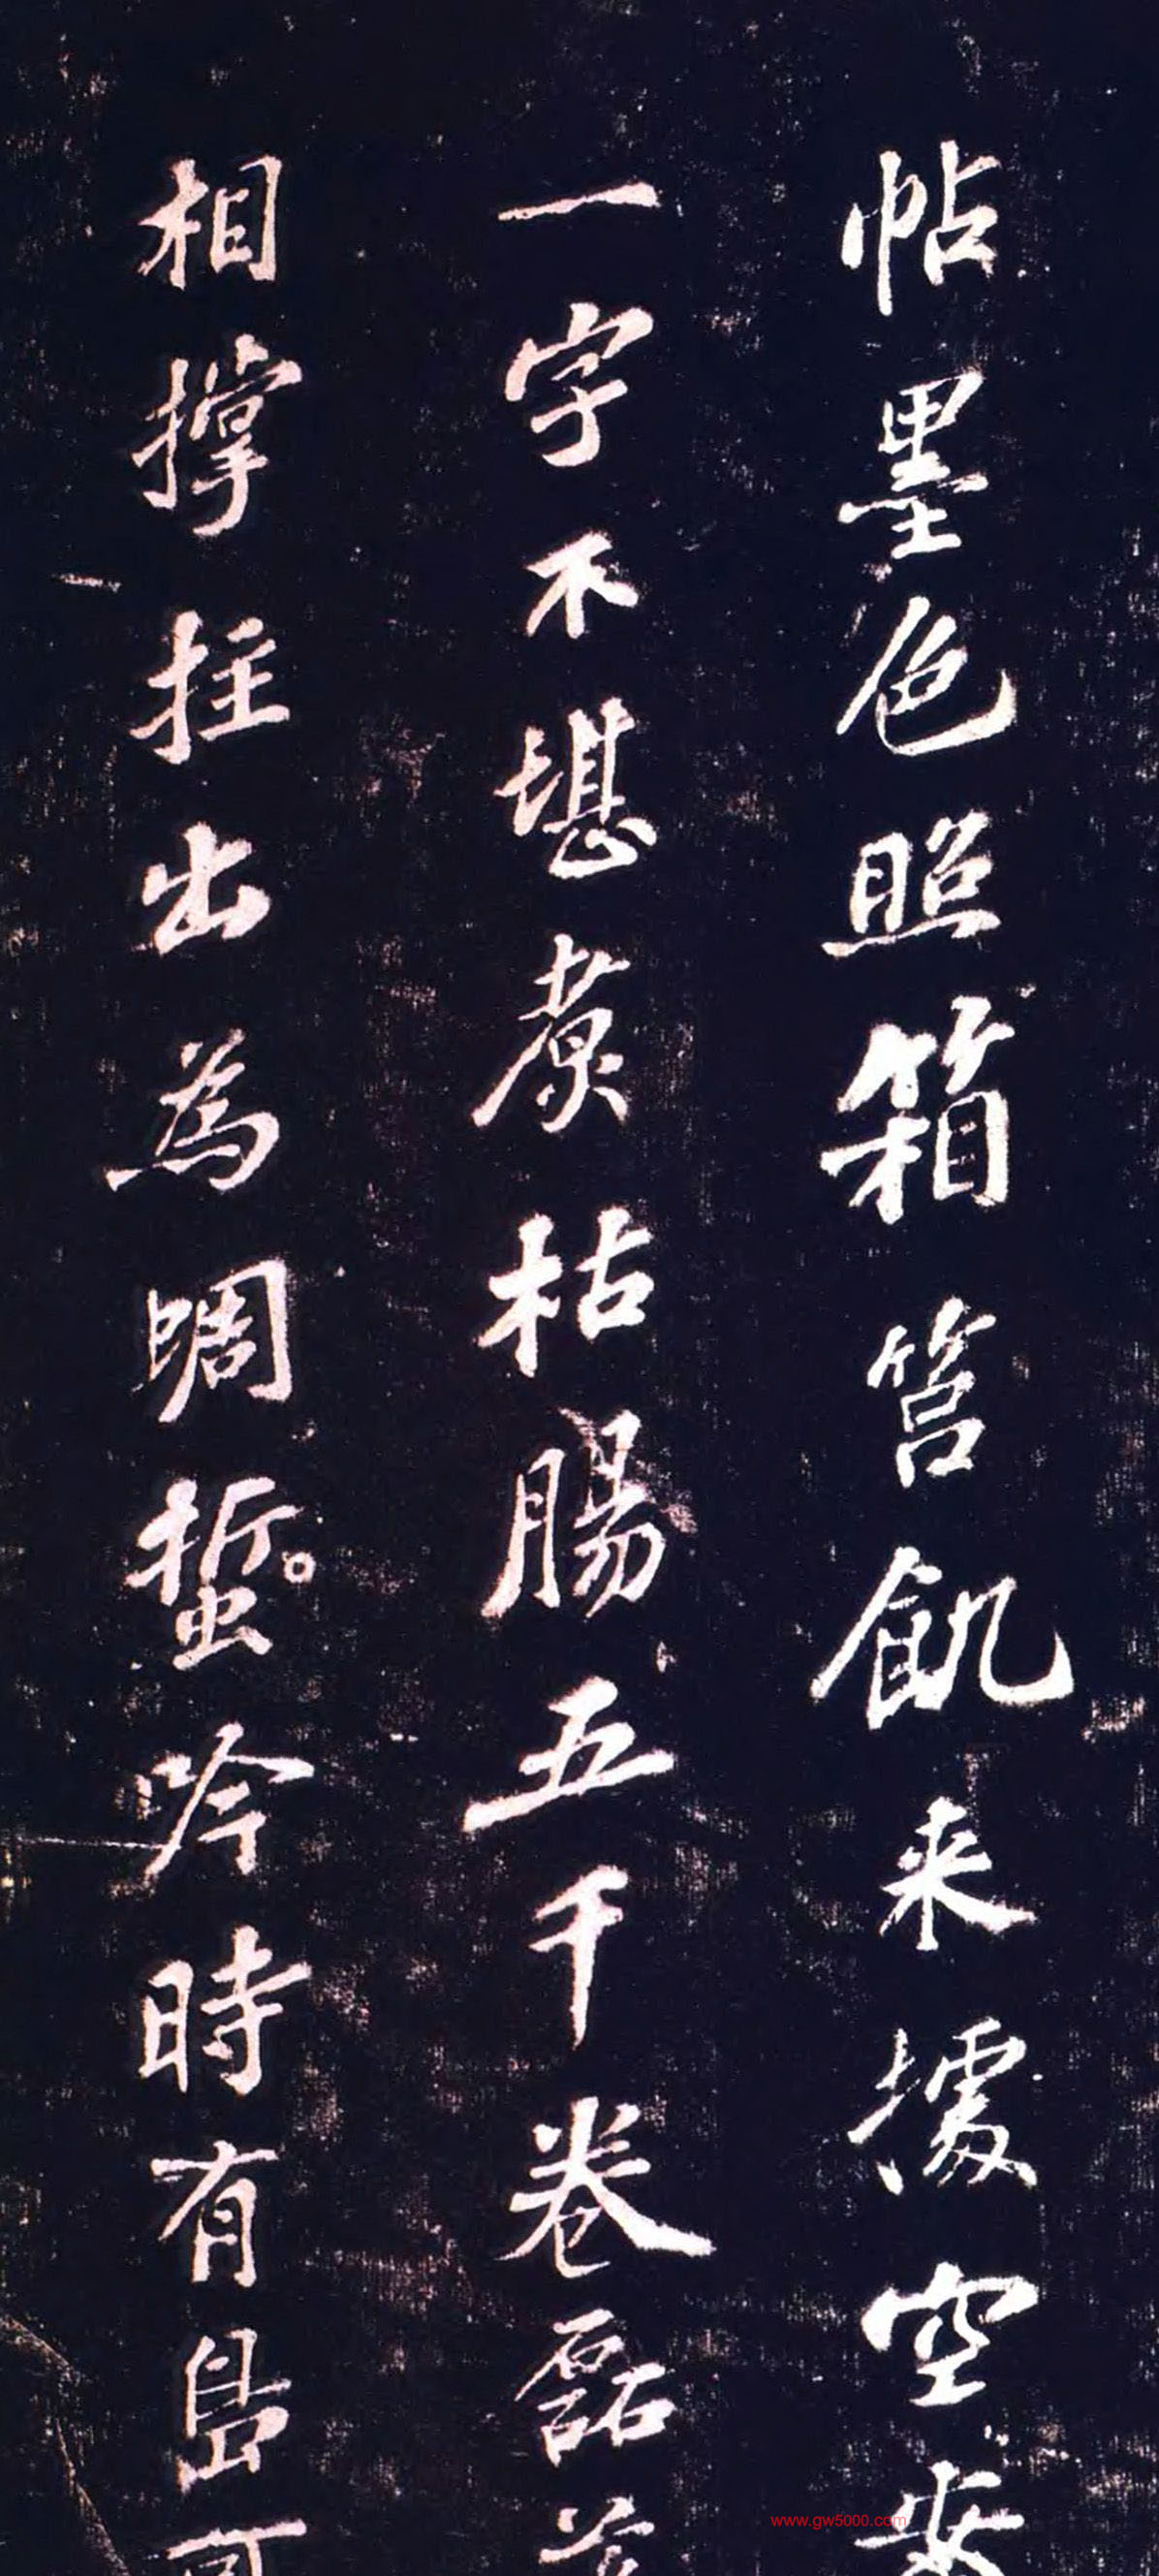 帖墨色照箱筥飢来據空案
一字不堪煮枯腸五千卷磊
相撐拄出為蜩蜇吟時有島
www.gw5000.com